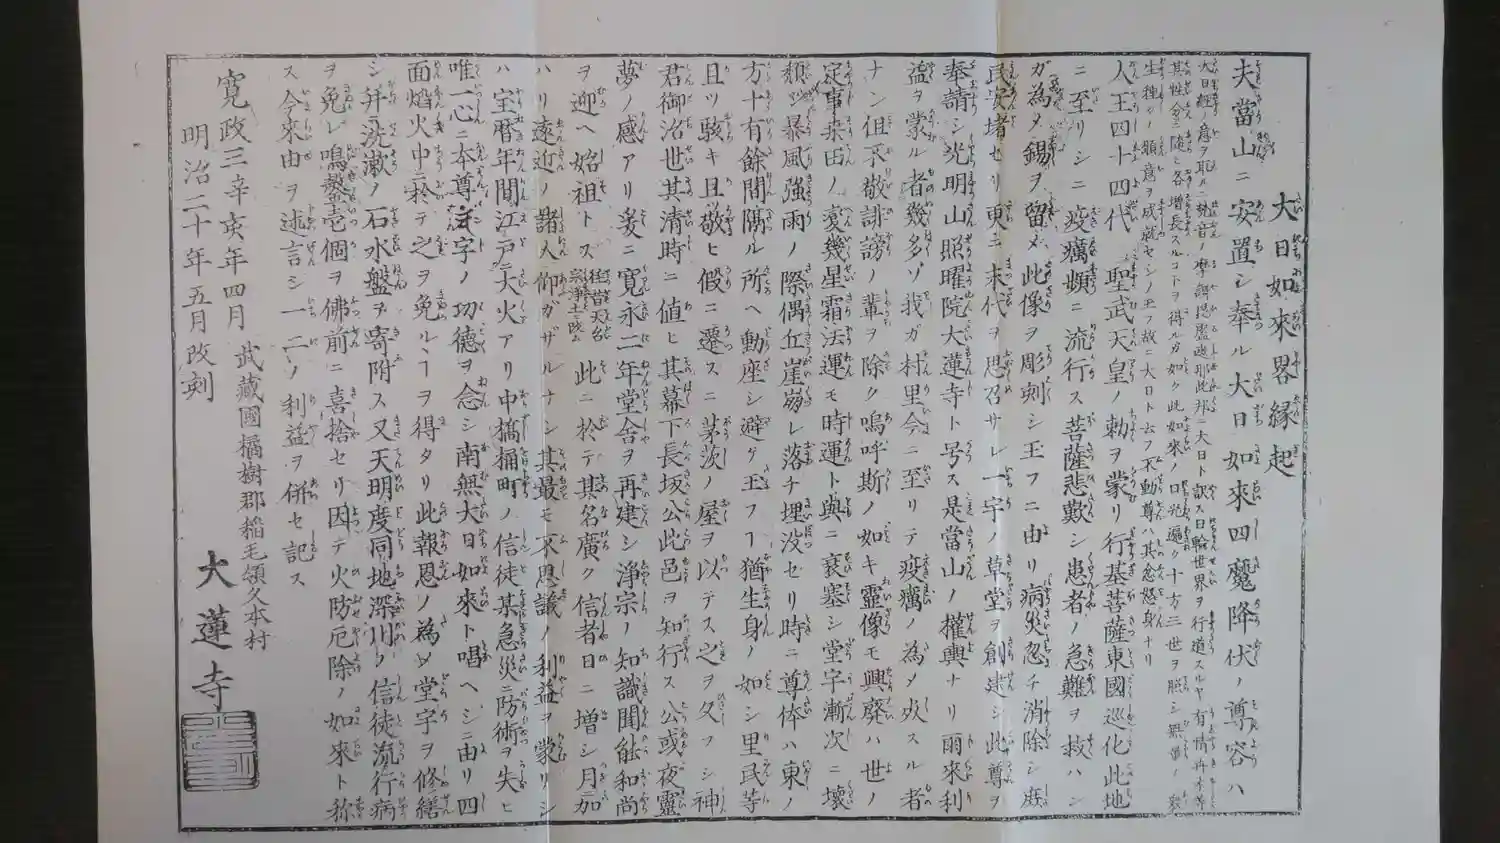 大日如來畧縁起
夫當山ニ安置シ奉ル大日如來四魔降伏ノ尊容ハ
大日經ノ意ヲ取ル梵音ノ摩訶毘盧遮那此邦ニ大日ト訳ス日輪世界ヲ行道スルヤ有情非
其性分ニ隨ヒ各増長スルコトヲ得ル如ク此如來ノ口光遍ク十方三世ヲ照シ無量ノ衆
生種ノ願意ヲ成就セシノ玉フ故ニ大日ト云フ不動尊ハ其忿怒身ナリ
人王四十四代聖武天皇ノ勅ヲ蒙リ行基菩薩東國巡化此地
ニ至リシニ疫癘頻ニ流行ス菩薩悲歎シ患者ノ急難ヲ救ハン
ガ為メ錫ヲ留メ此像ヲ彫刻シ玉フニ由リ病災忽チ消除シ庶
民安堵セリ更ニ末代ヲ思召サレ一宇ノ草堂ヲ創建シ此尊ヲ
奉請シ光明山照曜院大蓮寺ト号ス是當山ノ權輿ナリ爾來利
益ヲ蒙ル者幾多ゾ我ガ村里今ニ至リテ疫癘ノ為メ殀スル者
ナシ但不敬誹謗ノ輩ヲ除ク嗚呼斯ノ如キ靈像モ興廢ハ世ノ
定事桒田ノ変幾星霜法運モ時運ト與ニ衰塞シ堂宇漸次ニ壊
頽シ暴風強雨ノ際偶丘崖崩レ落チ埋没セリ時ニ尊体ハ東ノ
方十有餘間隔ル所ヘ動座シ避ケ玉フヿ猶生身ノ如シ里民等
且ツ駭キ且敬ヒ假ニ遷スニ茅茨ノ屋ヲ以テス之ヲ久フシ神
君御治世其清時ニ値ヒ其幕下長坂公此邑ヲ知行ス公或夜靈
夢ノ感アリ爰ニ寛永二年堂舎ヲ再建シ浄宗ノ知識聞能和尚
ヲ迎ヘ始祖トス 往昔天台宗浄土ニ改ム 此ニ於テ其名廣ク信者日ニ増シ月加
ハリ遠近ノ諸人仰ガザルナシ其最モ不思議ノ利益ヲ蒙リシ
ハ宝暦年間江戸大火アリ中橋桶町ノ信徒某急災ニ防術ヲ失ヒ
唯一心ニ本尊字ノ功德ヲ念シ南無大日如來ト唱ヘシニ由リ四
面熖火中ニ於テ之ヲ免ルヽヿヲ得タリ此報恩ノ為メ堂宇ヲ修繕
シ并ニ洗漱ノ石水盤ヲ寄附ス又天明度同地深川ノ信徒流行病
ヲ免レ鳴盤壱個ヲ佛前ニ喜捨セリ因テ火防厄除ノ如來ト称
ス今來由ヲ述言シ一二ノ利益ヲ併セ記ス
寛政三辛亥年四月
武藏國橘樹郡稲毛領久本村
明治二十年五月改刻
大蓮寺